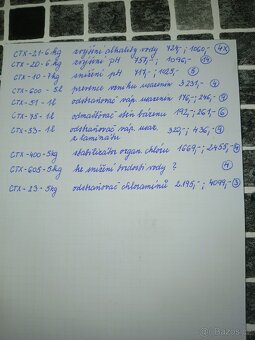 CTX-21-6kg zvýšení alkality vody 724,-; 1060,- (4x)
CTX-20-6kg zvýšení pH 757,-; 1096,- (19)
CTX-10-7kg snížení pH 717,-; 1023,- (5)
CTX-600-5l prevence vzniku usazenin 3231,- (4)
CTX-51-1l odstraňovač váp. usazenin 176,-; 246,- (9)
CTX-75-1l odmašťovač stěn bazénu 192,-; 261,- (6)
CTX-53-1l odstraňovač váp. usaz. 320,-; 436,- (9)
z laminátu
CTX-400-5kg stabilizátor organ. chlóru 1669,-; 2455,-
CTX-605-5kg ke snížení tvrdosti vody ? (4)
CTX-23-5kg odstraňovač chloramínů 2195,-; 4099,- (3)